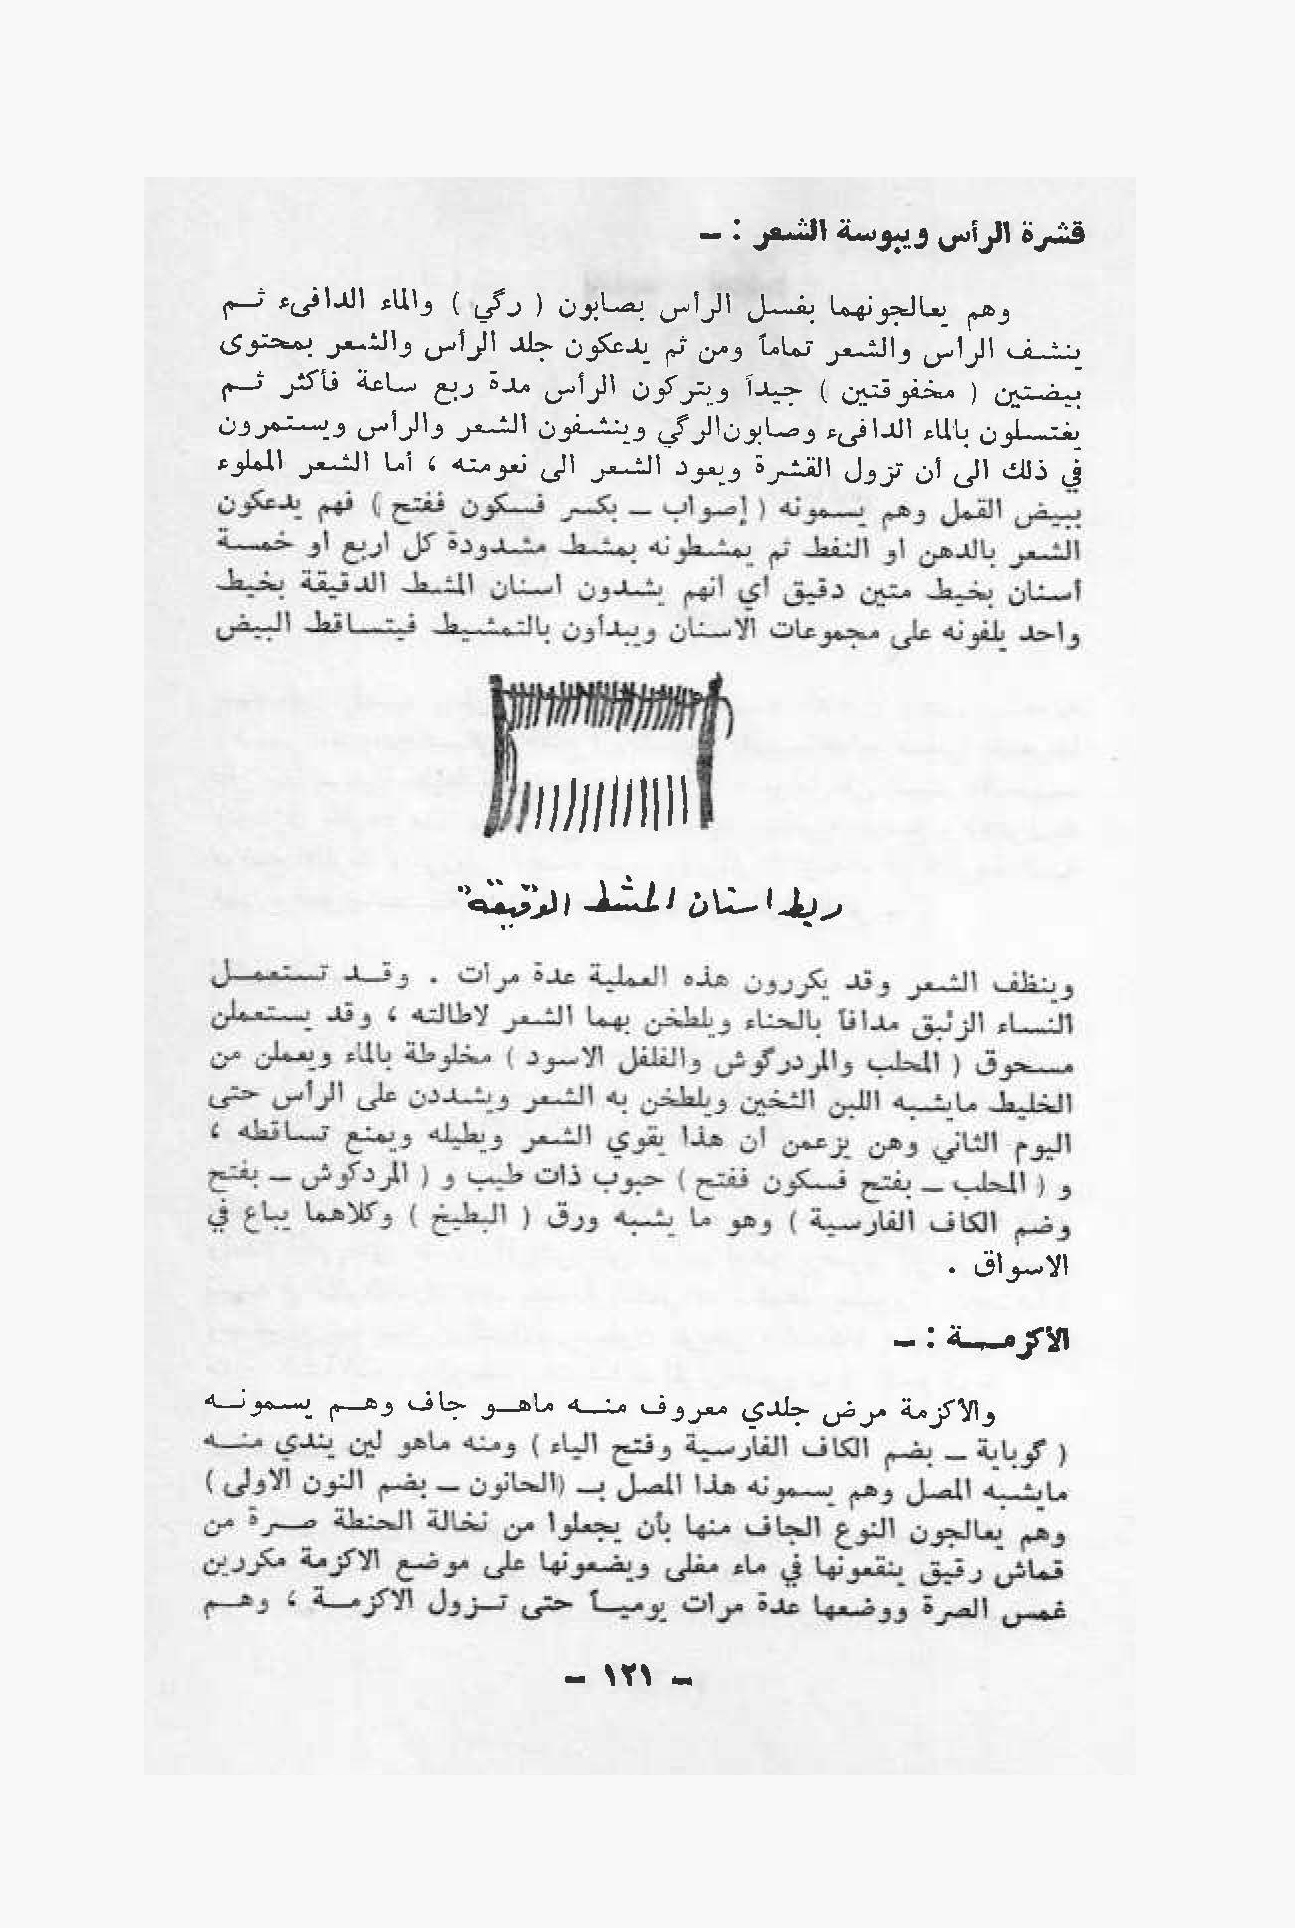 قشرة الرأس ويبوسة الشعر : ــ
وهم يعالجونهما بغسل الرأس بصابون ( رگي ) والماء الدافىء ثــم
ينشــف الرأس والشعر تماماً ومن ثم يدعكون جلد الرأس والشعر بمحتوى
بيضتين ( مخفوقتين ) جيداً ويتركون الرأس مدة ربع ساعة فأكثر ثــم
يغتسلون بالماء الدافىء وصابون الرگي وينشفون الشعر والرأس ويستمرون
في ذلك الى أن تزول القشرة ويعود الشعر الى نعومته ، أما الشعر المملوء
ببيض القمل وهم يسمونه ( إصواب ــ بكسر فسكون ففتح ) فهم يدعكون
الشعر بالدهن او النفط ثم يمشطونه بمشط مشدودة كل اربع او خمســة
أسنان بخيط متين دقيق اي انهم يشدون اسنان المشط الدقيقة بخيط
واحد يلفونه على مجموعات الاسنان ويبدأون بالتمشيط فيتساقط البيض
ربط اسنان المشط الدقيقة
وينظف الشعر وقد يكررون هذه العملية عدة مرات . وقــد تستعمــل
النساء الزئبق مدافاً بالحناء ويلطخن بهما الشعر لاطالته ، وقد يستعملن
مسحوق ( المحلب والمردرگوش والفلفل الاسود ) مخلوطة بالماء ويعملن من
الخليط مايشبه اللبن الثخين ويلطخن به الشعر ويشددن على الرأس حتى
اليوم الثاني وهن يزعمن ان هذا يقوي الشعر ويطيله ويمنع تساقطه ،
و ( المحلب ــ بفتح فسكون ففتح ) حبوب ذات طيب و ( المردكوش ــ بفتح
وضم الكاف الفارسية ) وهو ما يشبه ورق ( البطيخ ) وكلاهما يباع في
الاسواق .
الأكزمــة : ــ
والأكزمة مرض جلدي معروف منــه ماهــو جاف وهــم يسمونــه
( گوباية ــ بضم الكاف الفارسية وفتح الياء ) ومنه ماهو لين يندي منــه
مايشبه المصل وهم يسمونه هذا المصل بـ (الحانون ــ بضم النون الاولى )
وهم يعالجون النوع الجاف منها بأن يجعلوا من نخالة الحنطة صــرة من
قماش رقيق ينقعونها في ماء مغلى ويضعونها على موضع الاكزمة مكررين
غمس الصرة ووضعها عدة مرات يوميــاً حتى تــزول الاكزمــة ، وهــم
ــ ١٢١ ــ